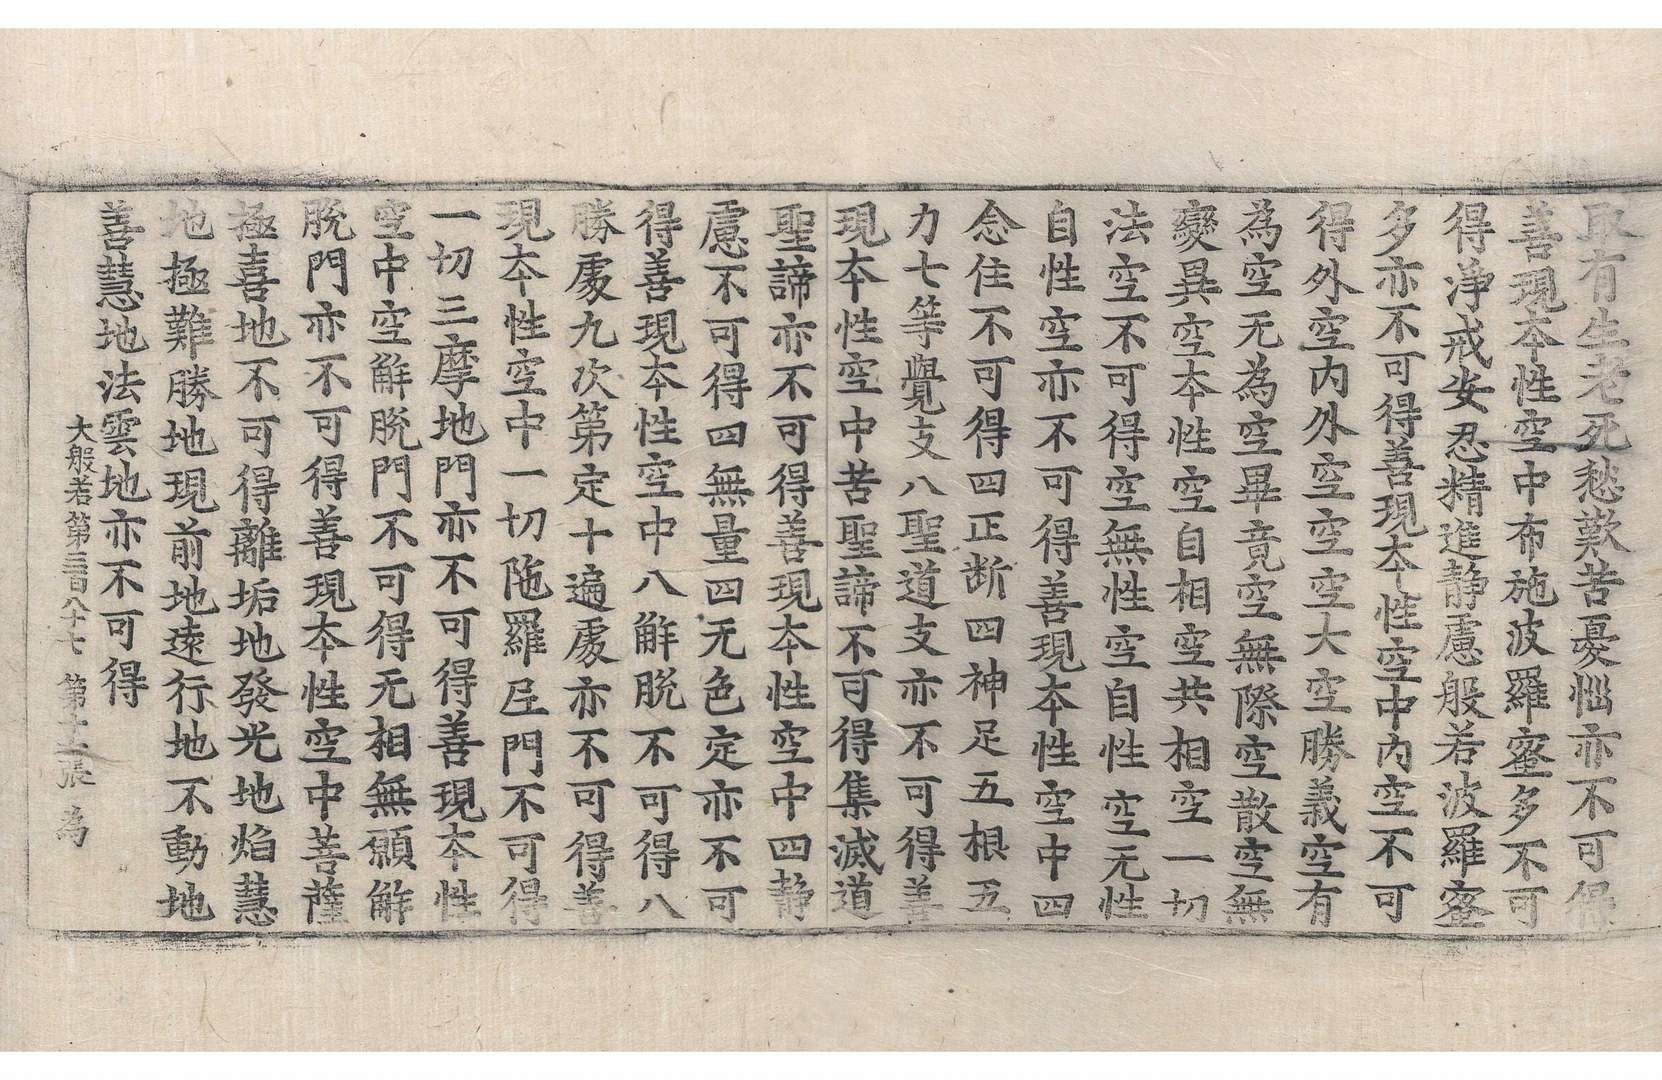 取有生老死愁歎苦憂惱亦不可得
善現本性空中布施波羅蜜多不可
得淨戒安忍精進静慮般若波羅蜜
多亦不可得善現本性空中内空不可
得外空内外空空空大空勝義空有
為空无為空畢竟空無際空散空無
變異空本性空自相空共相空一切
法空不可得空無性空自性空无性
自性空亦不可得善現本性空中四
念住不可得四正断四神足五根五
力七等覺支八聖道支亦不可得善
現本性空中苦聖諦不可得集滅道
聖諦亦不可得善現本性空中四静
慮不可得四無量四无色定亦不可
得善現本性空中八解脱不可得八
勝處九次第定十遍處亦不可得善
現本性空中一切陁羅尼門不可得
一切三摩地門亦不可得善現本性
空中空解脱門不可得无相無願解
脱門亦不可得善現本性空中菩薩
極喜地不可得離垢地發光地焰慧
地極難勝地現前地遠行地不動地
善慧地法雲地亦不可得
大般若第三百八十七 第十二張 為